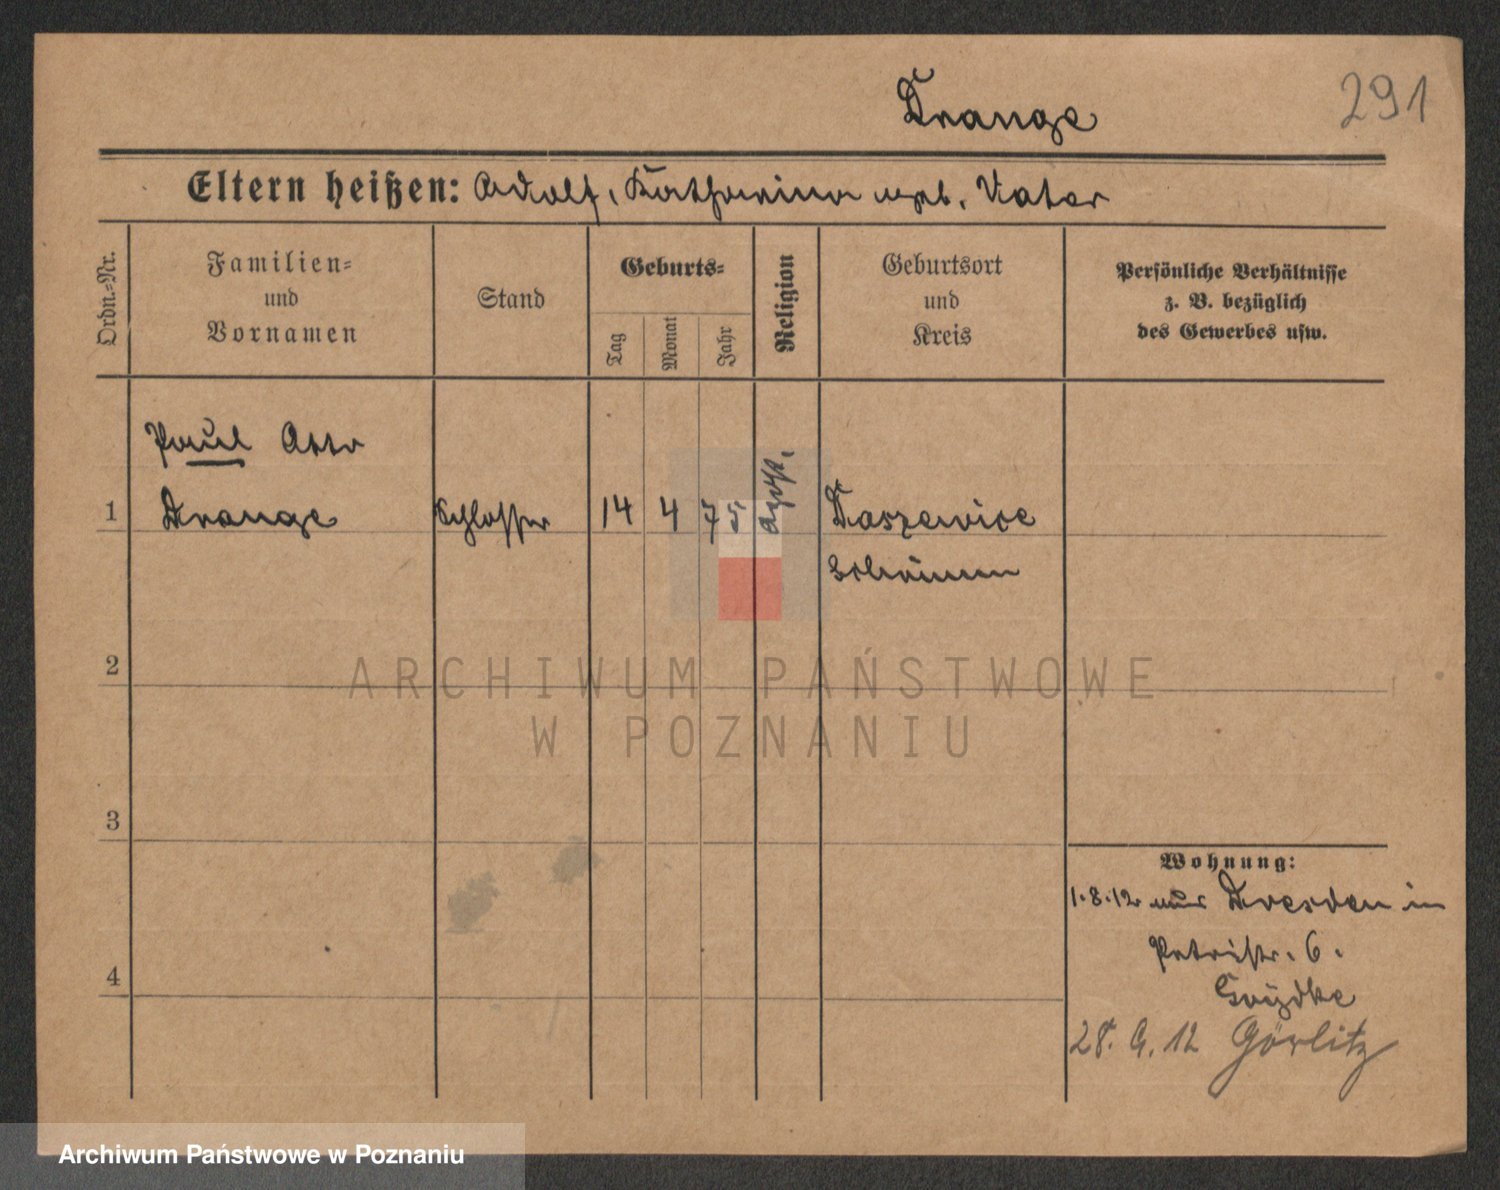 291
Drange
Eltern heißen: Adolf, Katharina geb. Vater
Ordn.-Nr.
Familien-
und
Vornamen
Stand
Geburts-
Tag
Monat
Jahr
Religion
Geburtsort
und
Kreis
Persönliche Verhältnisse
z. B. bezüglich
des Gewerbes usw.
Paul Otto
1 Drange Schlosser 14 4 75
2
3
4
Wohnung:
1.8.12 aus Dresden in
Petristr. 6.
28. 9. 12 Görlitz
ARCHIWUM PAŃSTWOWE
W POZNANIU
Archiwum Państwowe w Poznaniu